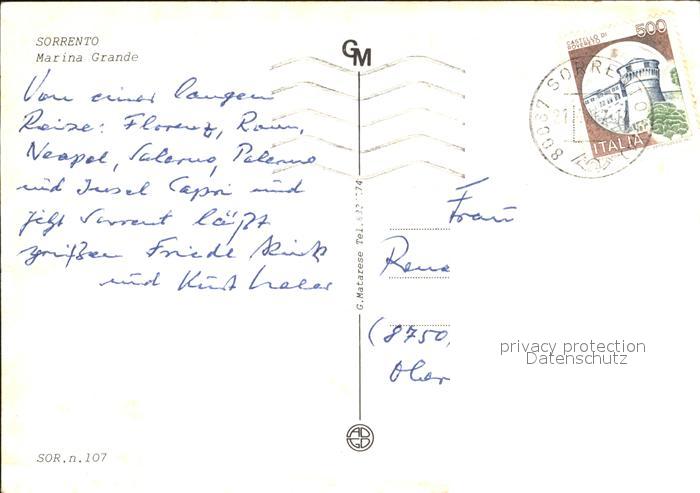 SORRENTO
Marina Grande
GM
CASTELLO DI
ROVERETO
500
ITALIA
80067 SORRENTO
Von einer langen
Reise: Florenz, Rom,
Neapel, Salerno, Palermo
und Insel Capri und
jetzt Sorrent läßt
grüßen Friede
und Kurt
G. Matarese Tel.
Frau
Rena
(8750,
Ober
privacy protection
Datenschutz
SOR.n.107